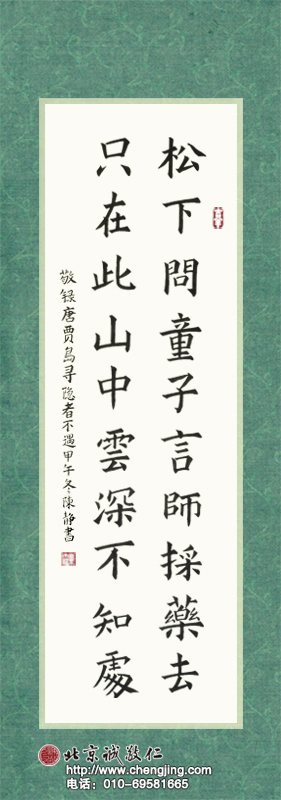 松下問童子言師採藥去
只在此山中雲深不知處
敬録唐賈島寻隐者不遇甲午冬陳静書
北京诚敬仁
http://www.chengjing.com
电话：010-69581665